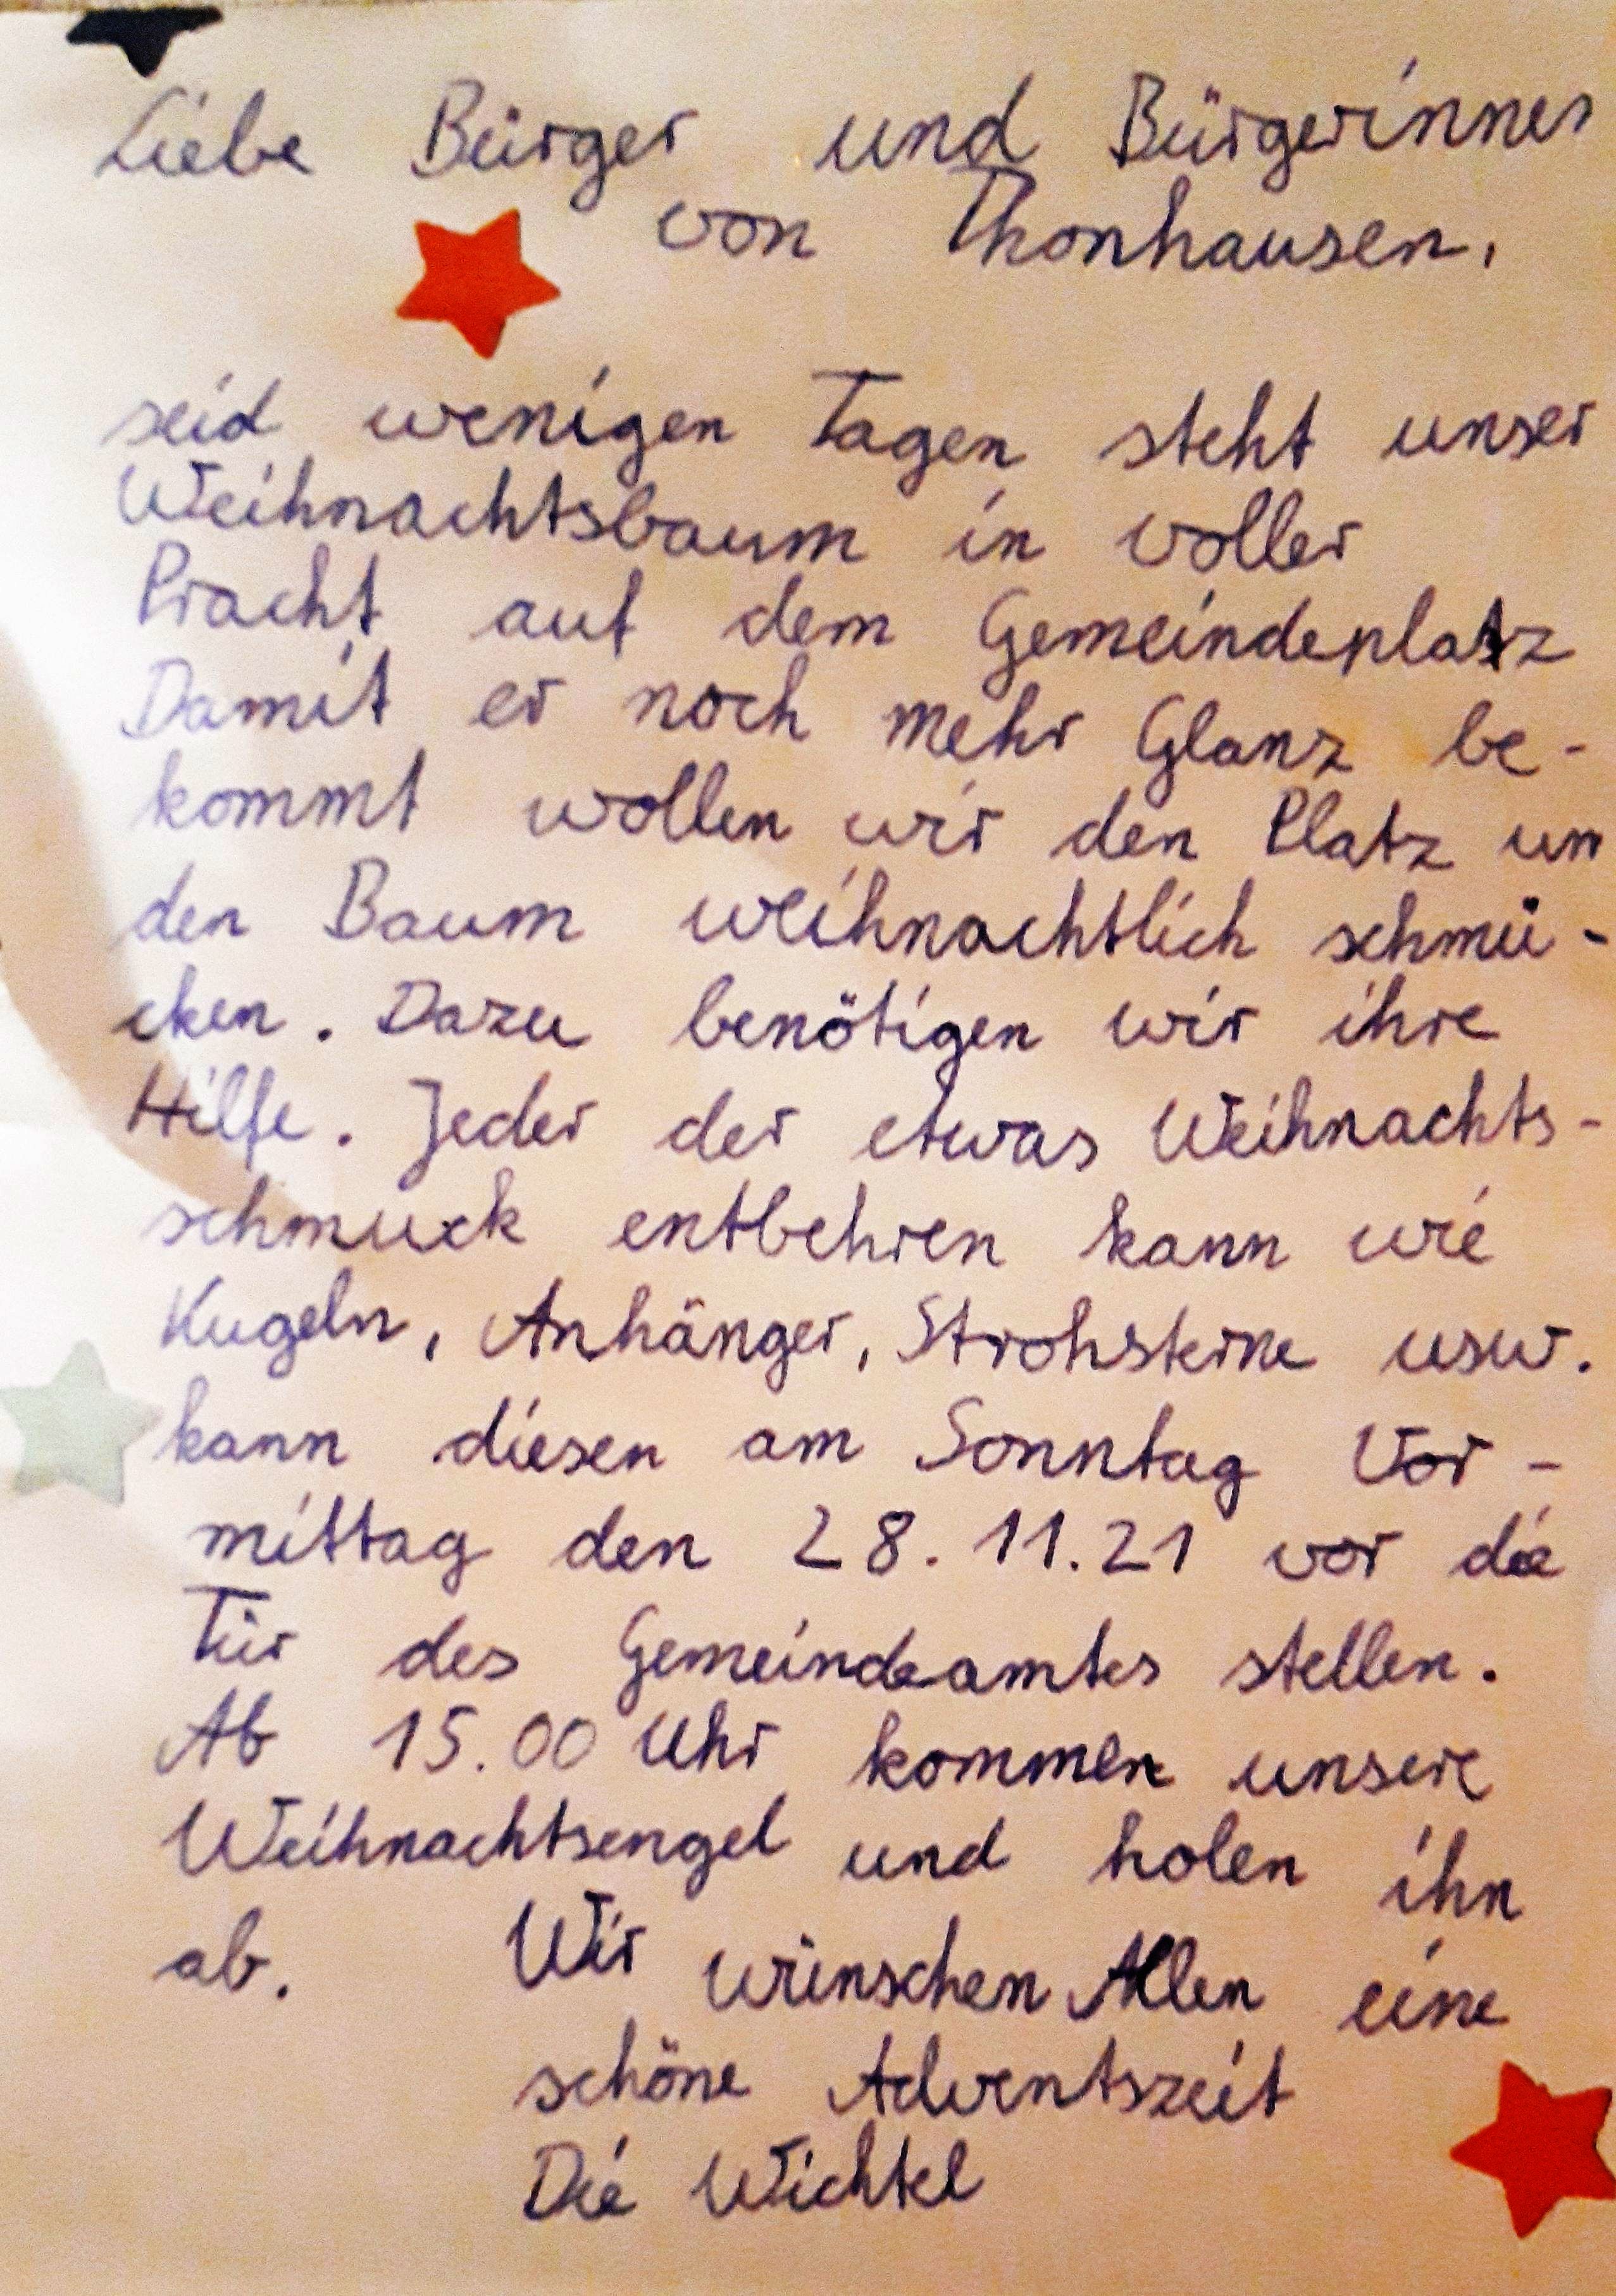 Liebe Bürger und Bürgerinnen
von Thonhausen,
seid wenigen Tagen steht unser
Weihnachtsbaum in voller
Pracht auf dem Gemeindeplatz
Damit er noch mehr Glanz be-
kommt wollen wir den Platz un
den Baum weihnachtlich schmü-
cken. Dazu benötigen wir ihre
Hilfe. Jeder der etwas Weihnachts-
schmuck entbehren kann wie
Kugeln, Anhänger, Strohsterne usw.
kann diesen am Sonntag Vor-
mittag den 28.11.21 vor die
Tür des Gemeindeamtes stellen.
Ab 15.00 Uhr kommen unsere
Weihnachtsengel und holen ihn
ab. Wir wünschen Allen eine
schöne Adventszeit
Die Wichtel